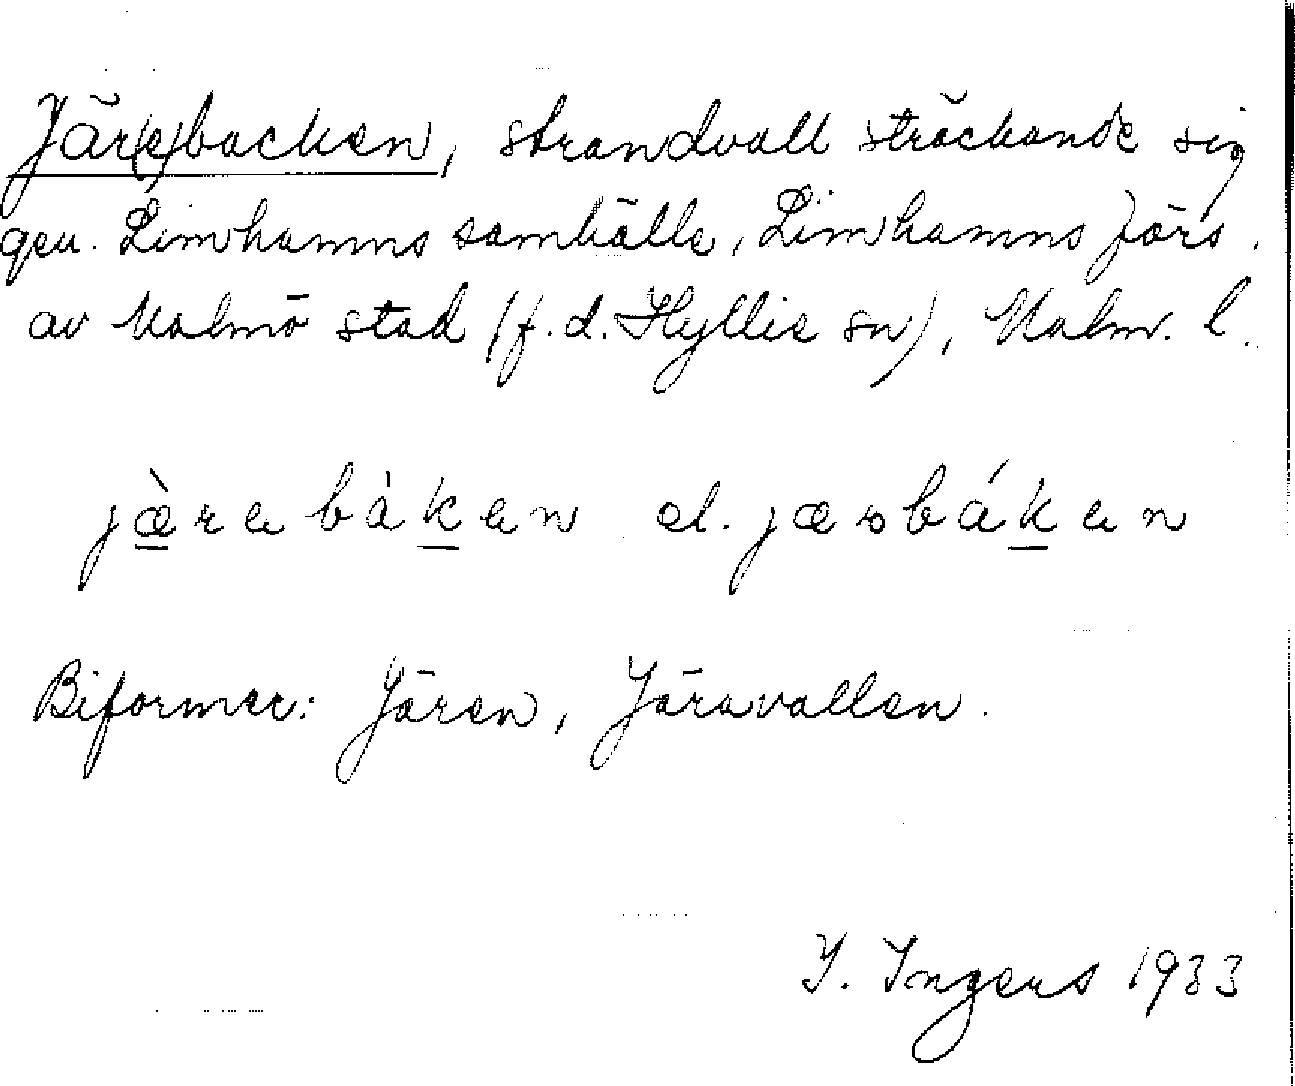 Jär(e)backen, strandvall sträckande sig
gen. Limhamns samhälle, Limhamns förs.
av Malmö stad (f.d. Hyllie sn), Malm. l.
jæ̀rebàken el. jærbáken
Biformer: Jären, Järavallen.
I. Ingers 1933